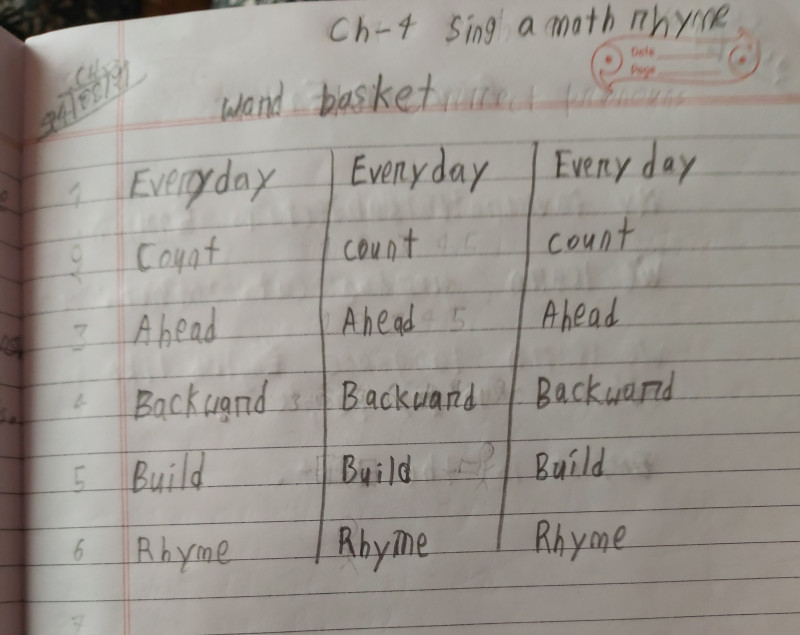 Ch-4 Sing a math Rhyme
Date
Page
word basket
1 Everyday Everyday Everyday
2 Count count count
3 Ahead Ahead Ahead
4 Backward Backward Backward
5 Build Build Build
6 Rhyme Rhyme Rhyme
7